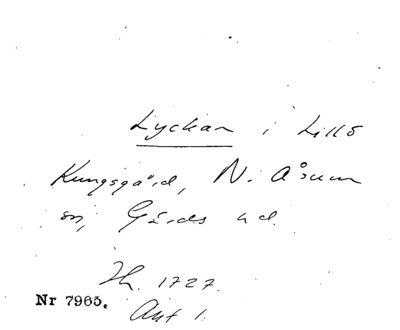 Lyckan i Lillö
Kungsgård, N. Åsum
sn, Gärds hd.
Jh. 1727.
Nr 7965.
Akt 1.